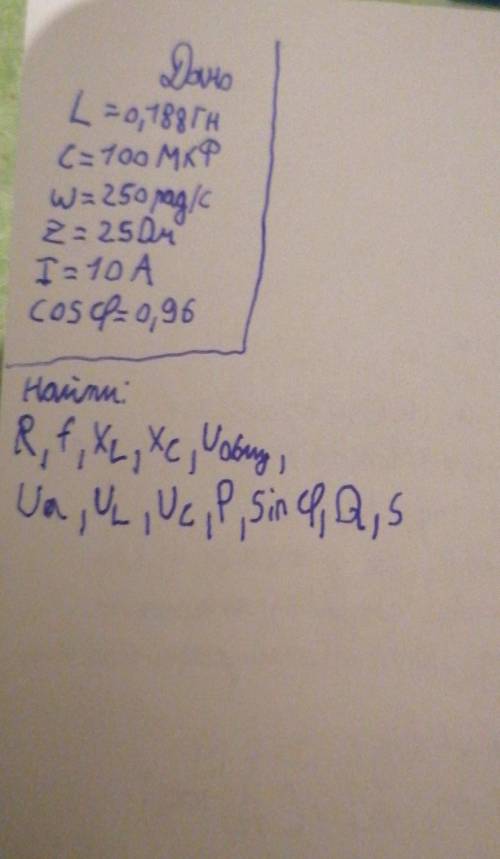 Дано
L = 0,188Гн
C = 100 МКФ
ω = 250 рад/с
Z = 25 Ом
I = 10 A
cos φ = 0,96
Найти:
R, f, XL, XC, Uобщ,
Ua, UL, UC, P, sin φ, Q, S